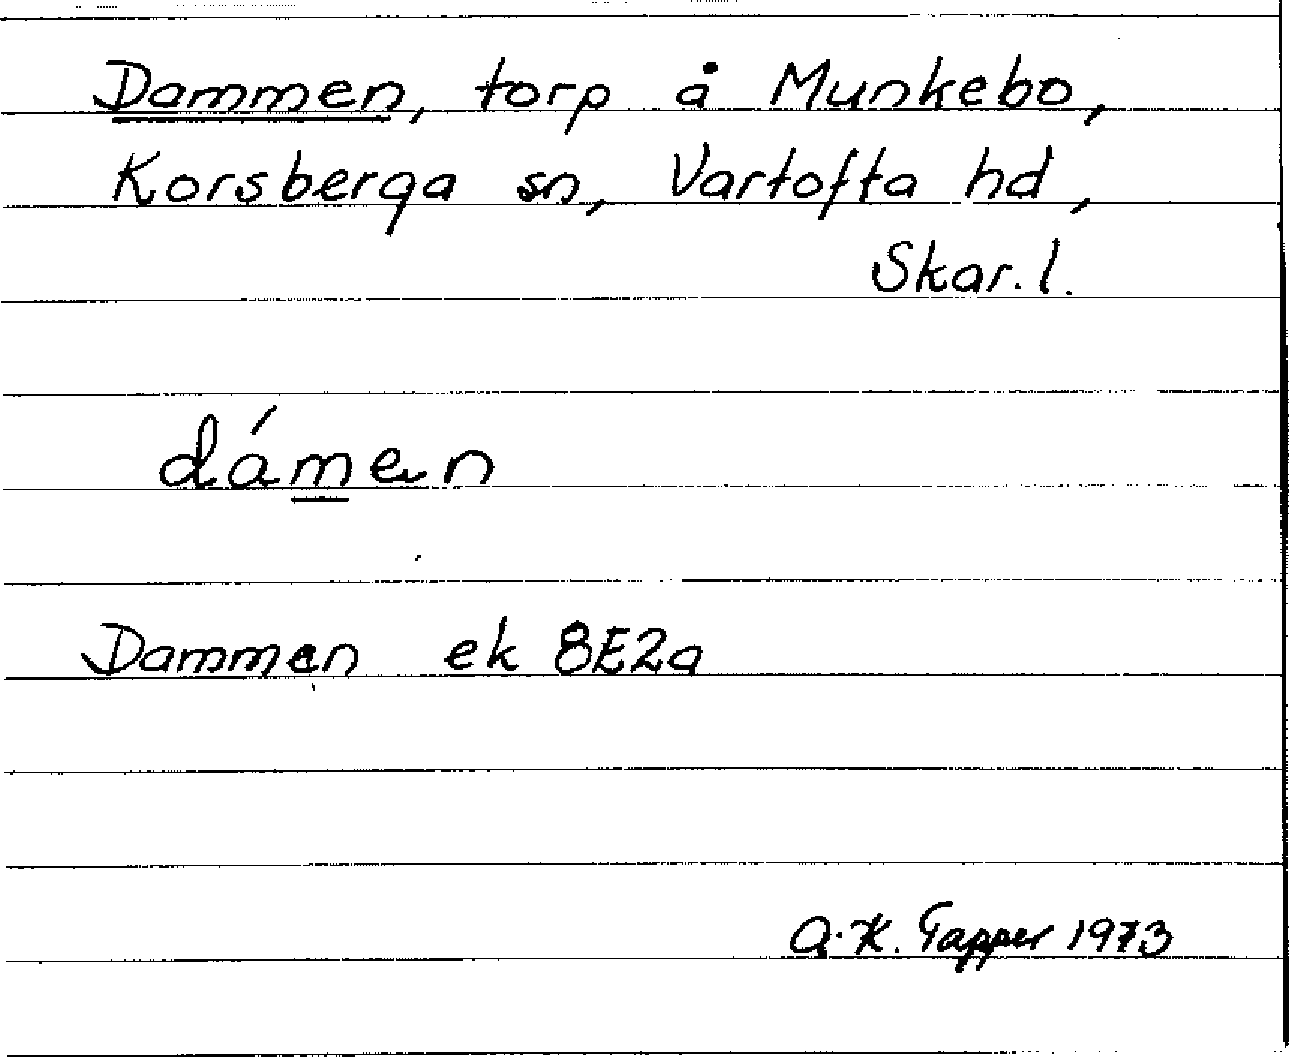 Dammen, torp å Munkebo,
Korsberga sn, Vartofta hd,
Skar. l.
dámen
Dammen ek 8E2a
A.K. Tapper 1973